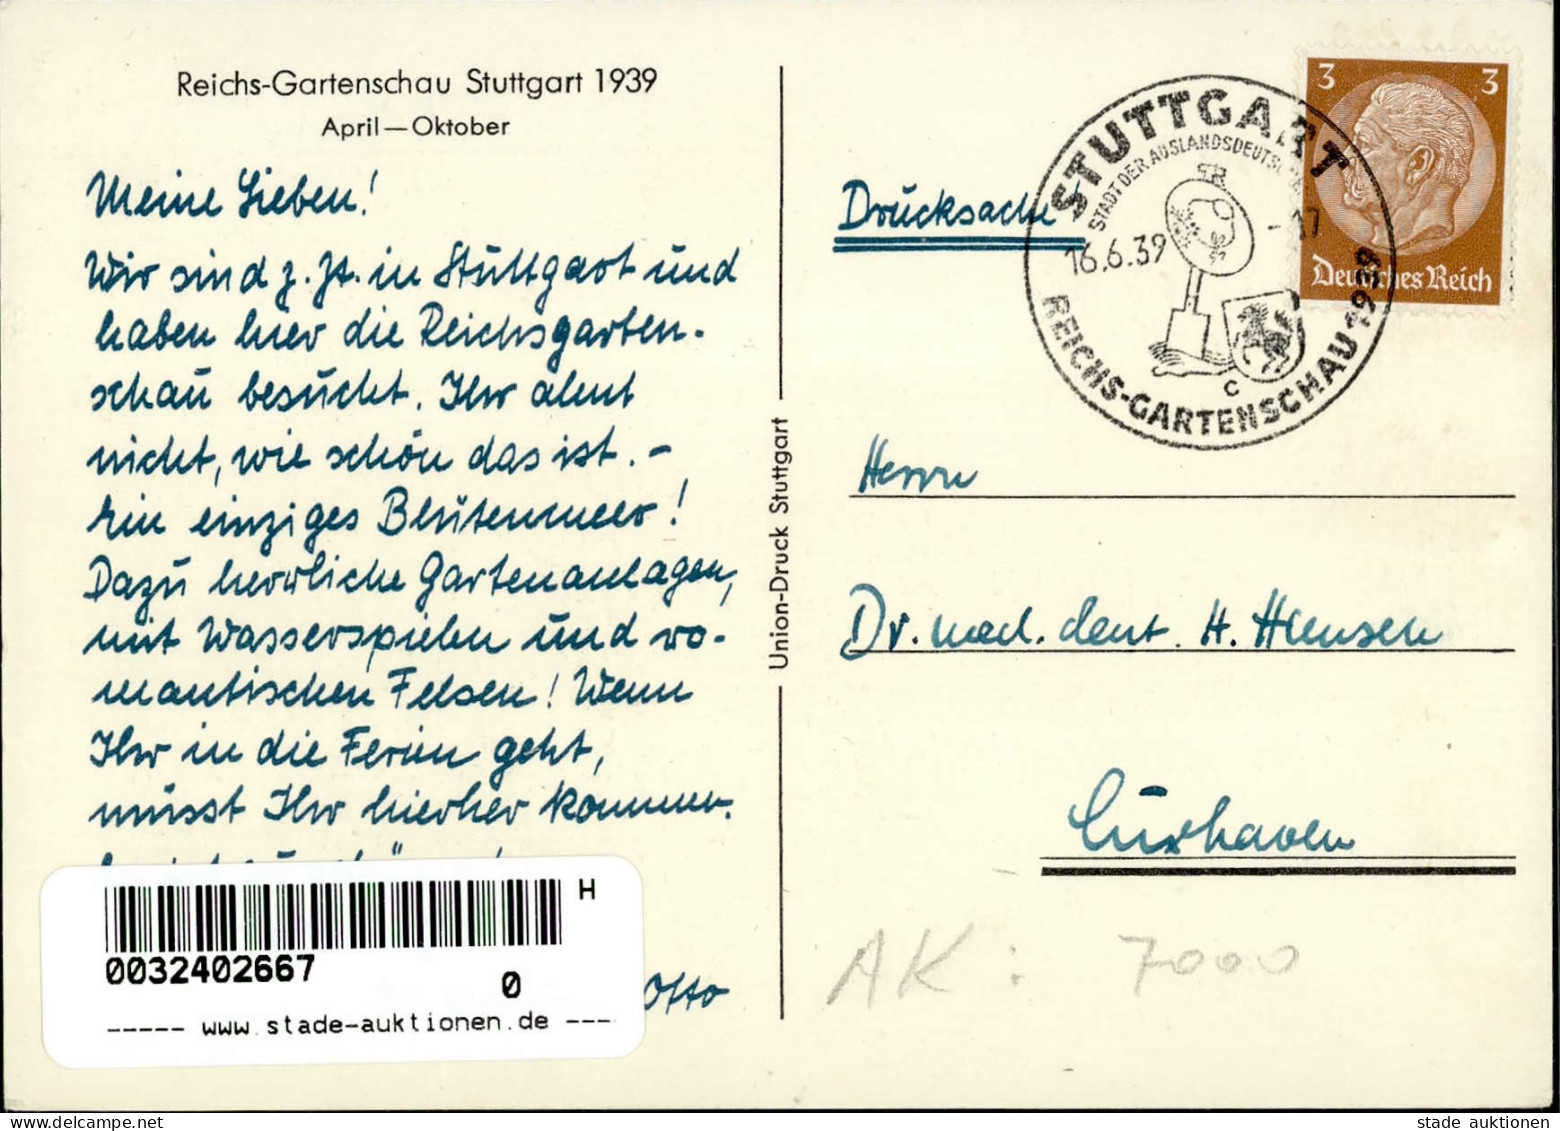 Reichs-Gartenschau Stuttgart 1939
April — Oktober
Meine Lieben!
Wir sind z. Zt. in Stuttgart und
haben hier die Reichsgarten-
schau besucht. Ihr ahnt
nicht, wie schön das ist. –
Ein einziges Blütenmeer!
Dazu herrliche Gartenanlagen,
mit Wasserspielen und ro-
mantischen Felsen! Wenn
Ihr in die Ferien geht,
müsst Ihr hierher kommen.
Otto
H
0032402667
0
----- www.stade-auktionen.de ---
Union-Druck Stuttgart
Drucksache
STUTTGART
STADT DER AUSLANDSDEUTSCHEN
16.6.39 -17
C
REICHS-GARTENSCHAU 1939
3 3
Deutsches Reich
Herrn
Dr. med. dent. H. Hünsen
Cuxhaven
AK: 7000
stade auktionen